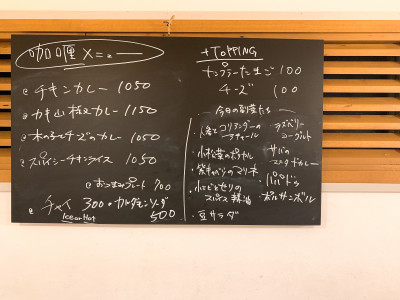 咖喱 メニュー
チキンカレー 1050
カキ山椒カレー 1150
木の子チーズのカレー 1050
スパイシーチキンライス 1050
おつまみプレート 700
チャイ 300
Ice or Hot
カルダモンソーダ
500
+TOPPING
ナンプラーたまご 100
チーズ 100
今日の副菜たち
・人参とコリアンダーの
アチャール
・小松菜のポリヤル
・紫キャベツのマリネ
・スパイス
・豆サラダ
ラズベリー
ヨーグルト
サバの
マスタードカレー
・パパドゥ
・ポルサンボル